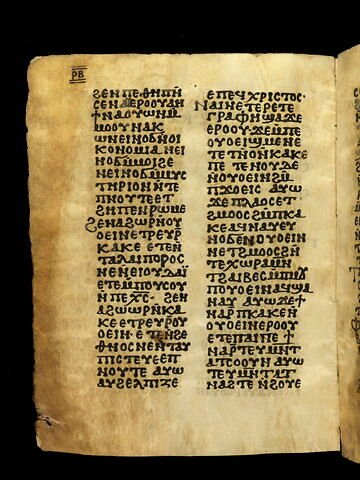 ⲣⲃ
ϩⲉⲛⲡⲉⲑⲏⲡⲛⲉ
ⲥⲉⲛⲁⲉⲣⲟⲟⲩ
ϯⲛⲁⲟⲩⲱⲛϩ̄
ⲙⲟⲟⲩⲛⲁⲕ
ⲱⲛⲉⲓⲛⲟϭⲛⲟⲓ
ⲕⲟⲛⲟⲙⲓⲁ ⲛⲉⲓ
ⲛⲟϭⲙ̄ⲙⲟⲓϩⲉ
ⲛⲉⲓⲛⲟϭⲙ̄ⲙⲩⲥ
ⲧⲏⲣⲓⲟⲛⲛ̄ⲧⲉ
ⲡⲛⲟⲩⲧⲉⲉⲧ
ϩⲏⲡⲉⲛⲣⲱⲙⲉ
ϩⲉⲛⲁϣⲱⲣⲛ̄ⲟⲩ
ⲟⲉⲓⲛⲉⲧⲣⲉⲩⲣ̄
ⲕⲁⲕⲉ ⲉⲧⲉⲛ̄
ⲧⲁⲗⲁⲓⲡⲟⲣⲟⲥ
ⲛⲉⲛⲉⲓⲟⲩⲇⲁⲓ̈
ⲉⲧⲉⲙⲡⲟⲩⲥⲟⲩ
ⲛ̄ⲡⲉⲭ̄ⲥ̄· ϩⲉⲛ
ⲁϣⲱⲣⲛ̄ⲕⲁ
ⲕⲉⲉⲧⲣⲉⲩⲣ̄ⲟⲩ
ⲟⲉⲓⲛ·ⲉⲧⲉⲛ̄ϩⲉ
ⲑⲛⲟⲥⲛⲉⲛⲧⲁⲩ
ⲡⲓⲥⲧⲉⲩⲉⲉⲡ
ⲛⲟⲩⲧⲉ ⲁⲩⲱ
ⲁⲩϩⲉⲗⲡⲓⲍⲉ
ⲉⲡⲉⲭⲣⲓⲥⲧⲟⲥ·
ⲛⲁⲓⲛⲉⲧⲉⲣⲉⲧⲉ
ⲅⲣⲁⲫⲏϣⲁϫⲉ
ⲉⲣⲟⲟⲩ·ϫⲉⲙ̄ⲡⲉ
ⲟⲩⲟⲉⲓϣⲛⲉⲛⲉ
ⲧⲉⲧⲛ̄ⲟⲛ̄ⲕⲁⲕⲉ
ⲡⲉ ⲧⲉⲛⲟⲩⲇⲉ
ⲛⲟⲩⲟⲉⲓⲛϩⲙ̄
ⲡϫⲟⲉⲓⲥ ⲁⲩⲱ
ϫⲉⲡⲗⲁⲟⲥⲉⲧ
ϩⲙⲟⲟⲥϩⲙ̄ⲡⲕⲁ
ⲕⲉⲁⲩⲛⲁⲩⲉⲩ
ⲛⲟϭⲛ̄ⲟⲩⲟⲉⲓⲛ
ⲛⲉⲧϩⲙⲟⲟⲥϩⲛ̄
ⲧⲉⲭⲱⲣⲁⲙⲛ̄
ⲧϩⲁⲓⲃⲉⲥⲙ̄ⲡⲙⲟⲩ
ⲡⲟⲩⲟⲉⲓⲛⲁϣⲁ
ⲛⲁⲩ ⲁⲩⲱϫⲉϯ
ⲛⲁⲣⲡⲕⲁⲕⲉⲛ̄
ⲟⲩⲟⲉⲓⲛⲉⲣⲟⲟⲩ
ⲉⲧⲉⲡⲁⲓⲛⲉ ϯ
ⲛⲁⲣⲧⲉⲩⲙⲛ̄ⲧ
ⲁⲧⲥⲟⲟⲩⲛ ⲁⲩⲱ
ⲧⲉⲩⲙⲛ̄ⲧⲁⲧ
ⲛⲁϩⲧⲉ ⲛ̄ϩⲟⲩⲉ